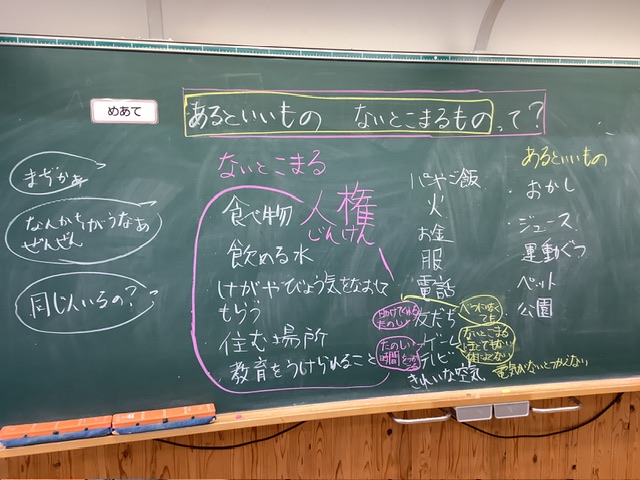 めあて
あるといいもの ないとこまるものって?
まぢかぁ
なんかちがうなぁ
ぜんぜん
同じ人いるの?
ないとこまる
人権
じんけん
食べ物
飲める水
けがやびょう気をなおして
もらう
住む場所
教育をうけられること
パンやご飯
火
お金
服
電話
友だち
ゲーム
テレビ
きれいな空気
助けてくれる
たのしい
たのしい
時間を
ないとこまる
電気がないとつかえない
あるといいもの
・おかし
・ジュース
・運動ぐつ
・ペット
・公園